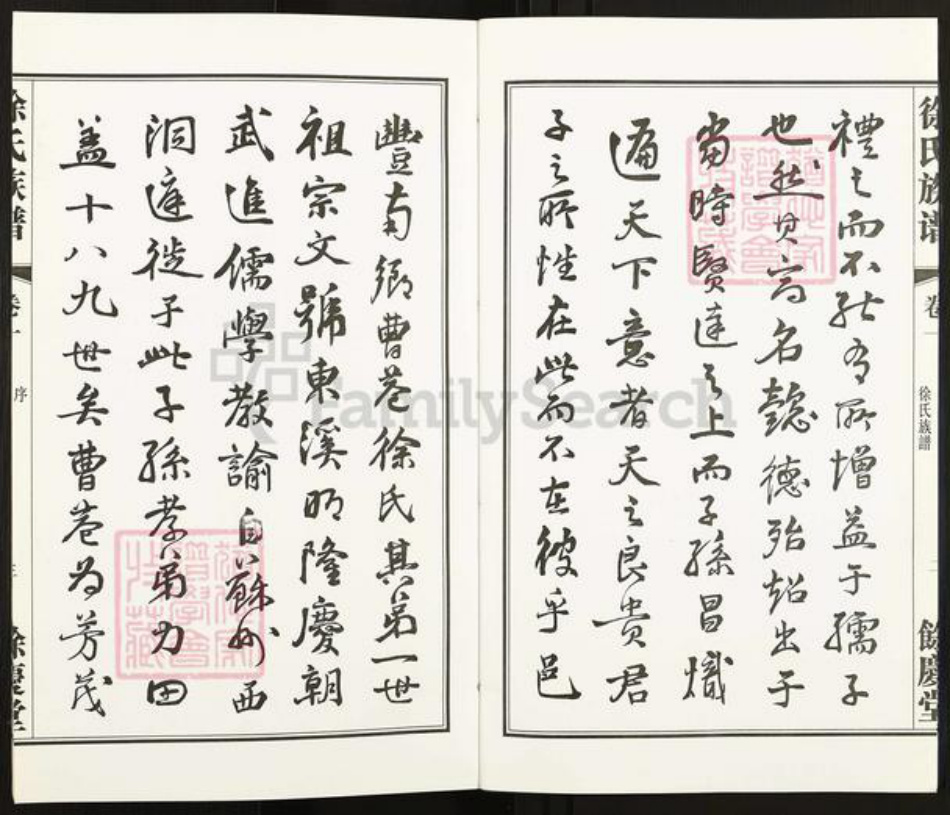 徐氏族譜
卷一
徐氏族譜
二
餘慶堂
禮之而不能有所增益于孺子
也然其高名懿德殆超出于
當時賢達之上而子孫昌熾
遍天下意者天之良貴君
子之所性在此而不在彼乎邑
豐南鄉曹巷徐氏其弟一世
祖宗文號東溪明隆慶朝
武進儒學教諭自蘇州西
洞庭徙于此子孫孝弟力田
蓋十八九世矣曹巷為芳茂
徐氏族譜
卷一
序
三
餘慶堂
FamilySearch